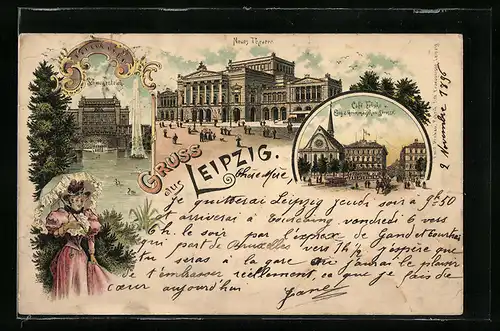 Neues Theater
Schwanenteich
Café Felsche
GRUSS
aus
LEIPZIG.
2 Novembre 1896
Je quitterai Leipzig jeudi soir à 9h50
et arriverai à Tourcoing vendredi 6 vers
6h. le soir par l'express de Gand et Courtrai
qui part de Bruxelles vers 14h½ j'espère que
tu seras à la gare où j'aurai le plaisir
de t'embrasser réellement, ce que je fais de
cœur aujourd'hui